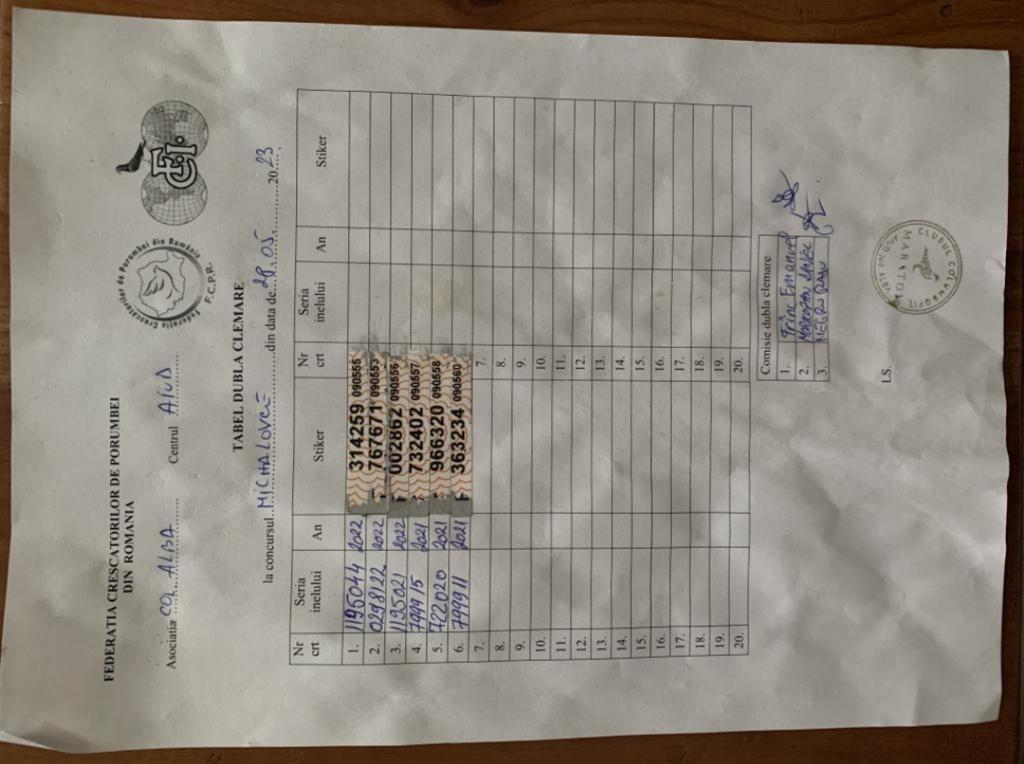 FEDERATIA CRESCATORILOR DE PORUMBEI
DIN ROMANIA
Federatia Crescatorilor de Porumbei din România
F.C.P.R.
F.C.I.
Asociatia COL ALBA Centrul AIUD
TABEL DUBLA CLEMARE
la concursul MICHALOVCE din data de 28.05 2023
Nr crt Seria inelului An Stiker Nr crt Seria inelului An Stiker
1. 1195044 2022 314259 090555
2. 0298122 2022 767671 090553
3. 1195021 2022 002862 090556
4. 799915 2021 732402 090557
5. 722020 2021 966320 090558
6. 799911 2021 363234 090560
7. 7.
8. 8.
9. 9.
10. 10.
11. 11.
12. 12.
13. 13.
14. 14.
15. 15.
16. 16.
17. 17.
18. 18.
19. 19.
20. 20.
Comisie dubla clemare
1. Frînc Emanuel
2.
3. NEGRU
LS.
CLUBUL COLUMBOFIL